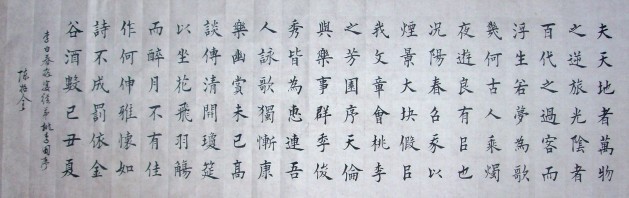 夫天地者萬物
之逆旅光陰者
百代之過客而
浮生若夢為歌
幾何古人秉燭
夜遊良有㠯也
况陽春召我以
煙景大塊假㠯
我文章會桃李
之芳園序天倫
與樂事群季俊
秀皆為惠連吾
人詠歌獨慚康
樂幽賞未已高
談傳清開瓊筵
以坐花飛羽觴
而醉月不有佳
作何伸雅懷如
詩不成罰依金
谷酒數己丑夏
李白春夜宴從弟桃李園序